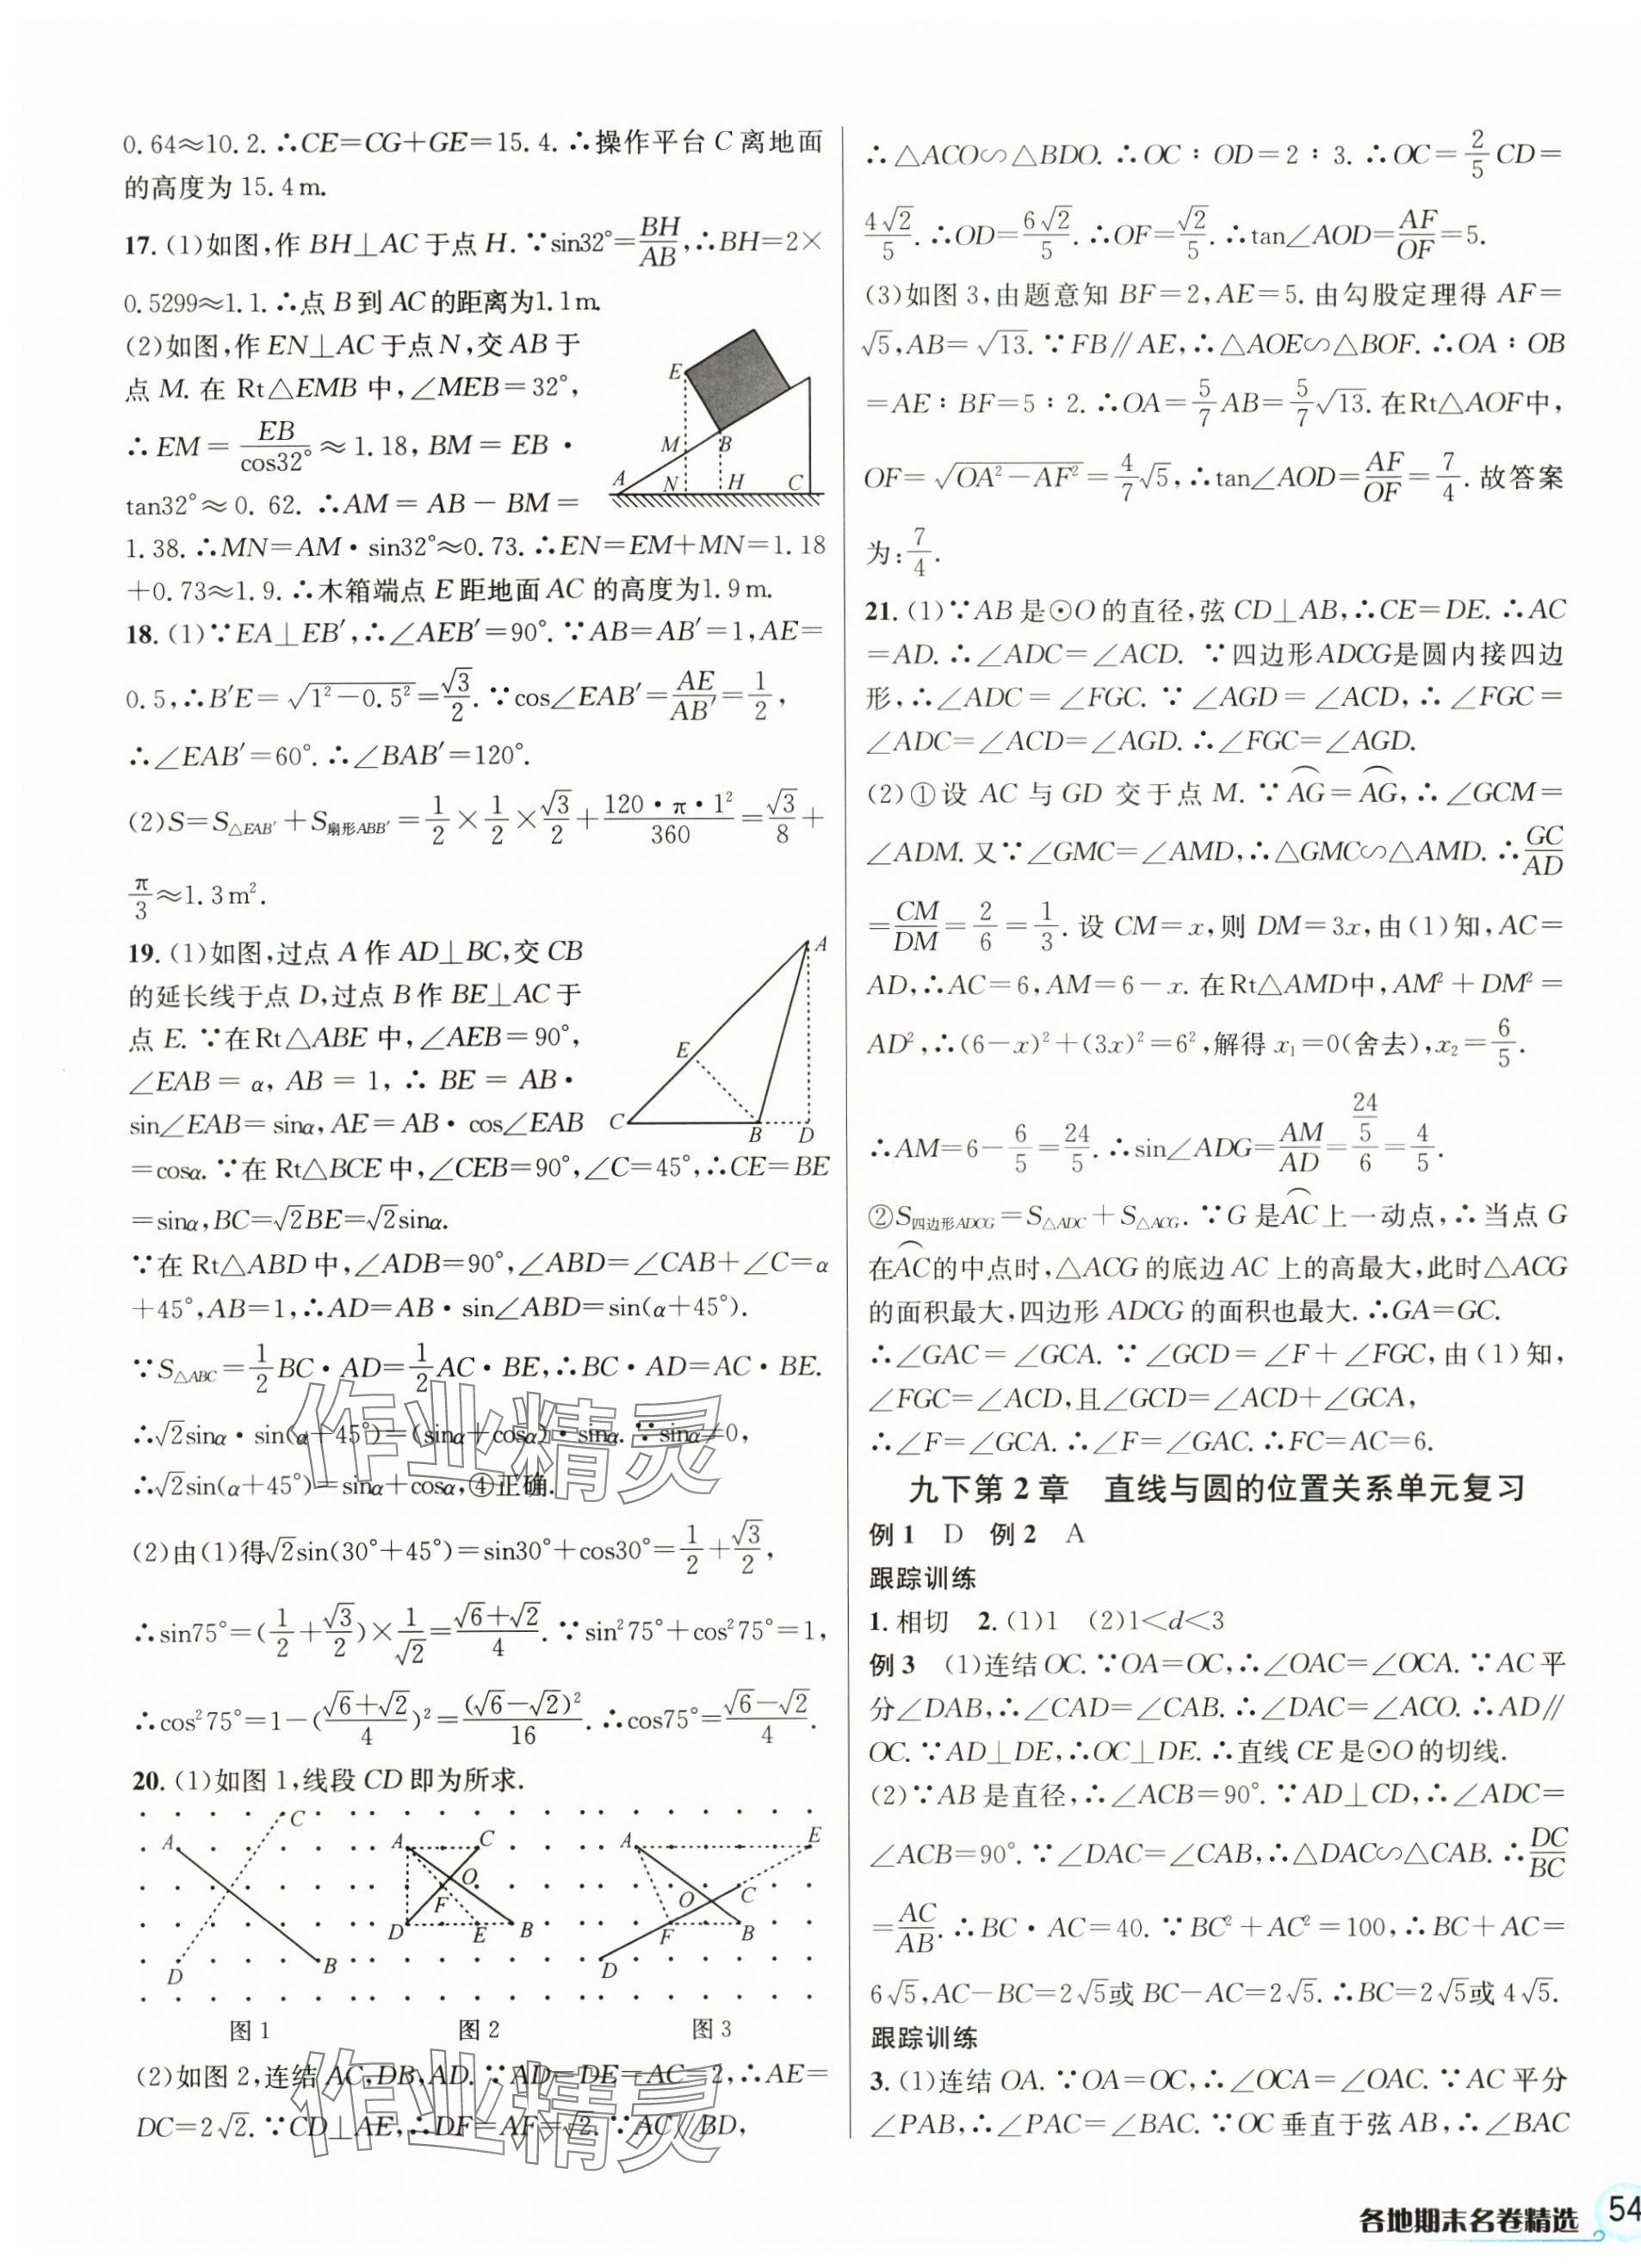 0.64≈10.2.∴CE=CG+GE=15.4.∴操作平台C离地面
的高度为15.4m.
17.(1)如图,作BH⊥AC于点H.∵sin32°=BH/AB,∴BH=2×
0.5299≈1.1.∴点B到AC的距离为1.1m.
(2)如图,作EN⊥AC于点N,交AB于
点M.在Rt△EMB中,∠MEB=32°,
∴EM=EB/cos32°≈1.18,BM=EB·
tan32°≈0.62.∴AM=AB-BM=
E
M
B
A
N
H
C
1.38.∴MN=AM·sin32°≈0.73.∴EN=EM+MN=1.18
+0.73≈1.9.∴木箱端点E距地面AC的高度为1.9m.
18.(1)∵EA⊥EB′,∴∠AEB′=90°.∵AB=AB′=1,AE=
0.5,∴B′E=√(1²-0.5²)=√3/2.∵cos∠EAB′=AE/AB′=1/2,
∴∠EAB′=60°.∴∠BAB′=120°.
(2)S=S△EAB′+S扇形ABB′=1/2×1/2×√3/2+120·π·1²/360=√3/8+
π/3≈1.3m².
19.(1)如图,过点A作AD⊥BC,交CB
的延长线于点D,过点B作BE⊥AC于
点E.∵在Rt△ABE中,∠AEB=90°,
∠EAB=α,AB=1,∴BE=AB·
sin∠EAB=sinα,AE=AB·cos∠EAB
A
E
C
B
D
=cosα.∵在Rt△BCE中,∠CEB=90°,∠C=45°,∴CE=BE
=sinα,BC=√2BE=√2sinα.
∵在Rt△ABD中,∠ADB=90°,∠ABD=∠CAB+∠C=α
+45°,AB=1,∴AD=AB·sin∠ABD=sin(α+45°).
∵S△ABC=1/2BC·AD=1/2AC·BE,∴BC·AD=AC·BE.
∴√2sinα·sin(α+45°)=(sinα+cosα)·sinα.∵sinα≠0,
∴√2sin(α+45°)=sinα+cosα,④正确.
作业精灵
(2)由(1)得√2sin(30°+45°)=sin30°+cos30°=1/2+√3/2,
∴sin75°=(1/2+√3/2)×1/√2=(√6+√2)/4.∵sin²75°+cos²75°=1,
∴cos²75°=1-((√6+√2)/4)²=(√6-√2)²/16.∴cos75°=(√6-√2)/4.
20.(1)如图1,线段CD即为所求.
C
A
B
D
图1
A
C
O
F
D
E
B
图2
A
E
C
O
F
B
D
图3
(2)如图2,连结AC,DB,AD.∵AD=DE=AC=2,∴AE=
DC=2√2.∵CD⊥AE,∴DF=AF=√2.∵AC∥BD,
作业精灵
∴△ACO∽△BDO.∴OC∶OD=2∶3.∴OC=2/5CD=
4√2/5.∴OD=6√2/5.∴OF=√2/5.∴tan∠AOD=AF/OF=5.
(3)如图3,由题意知BF=2,AE=5.由勾股定理得AF=
√5,AB=√13.∵FB∥AE,∴△AOE∽△BOF.∴OA∶OB
=AE∶BF=5∶2.∴OA=5/7AB=5/7√13.在Rt△AOF中,
OF=√(OA²-AF²)=4/7√5,∴tan∠AOD=AF/OF=7/4.故答案
为:7/4.
21.(1)∵AB是⊙O的直径,弦CD⊥AB,∴CE=DE.∴AC
=AD.∴∠ADC=∠ACD.∵四边形ADCG是圆内接四边
形,∴∠ADC=∠FGC.∵∠AGD=∠ACD,∴∠FGC=
∠ADC=∠ACD=∠AGD.∴∠FGC=∠AGD.
(2)①设AC与GD交于点M.∵⌒AG=⌒AG,∴∠GCM=
∠ADM.又∵∠GMC=∠AMD,∴△GMC∽△AMD.∴GC/AD
=CM/DM=2/6=1/3.设CM=x,则DM=3x,由(1)知,AC=
AD,∴AC=6,AM=6-x.在Rt△AMD中,AM²+DM²=
AD²,∴(6-x)²+(3x)²=6²,解得x₁=0(舍去),x₂=6/5.
∴AM=6-6/5=24/5.∴sin∠ADG=AM/AD=(24/5)/6=4/5.
②S四边形ADCG=S△ADC+S△ACG.∵G是⌒AC上一动点,∴当点G
在⌒AC的中点时,△ACG的底边AC上的高最大,此时△ACG
的面积最大,四边形ADCG的面积也最大.∴GA=GC.
∴∠GAC=∠GCA.∵∠GCD=∠F+∠FGC,由(1)知,
∠FGC=∠ACD,且∠GCD=∠ACD+∠GCA,
∴∠F=∠GCA.∴∠F=∠GAC.∴FC=AC=6.
九下第2章 直线与圆的位置关系单元复习
例1 D 例2 A
跟踪训练
1.相切 2.(1)1 (2)1<d<3
例3 (1)连结OC.∵OA=OC,∴∠OAC=∠OCA.∵AC平
分∠DAB,∴∠CAD=∠CAB.∴∠DAC=∠ACO.∴AD∥
OC.∵AD⊥DE,∴OC⊥DE.∴直线CE是⊙O的切线.
(2)∵AB是直径,∴∠ACB=90°.∵AD⊥CD,∴∠ADC=
∠ACB=90°.∵∠DAC=∠CAB,∴△DAC∽△CAB.∴DC/BC
=AC/AB.∴BC·AC=40.∵BC²+AC²=100,∴BC+AC=
6√5,AC-BC=2√5或BC-AC=2√5.∴BC=2√5或4√5.
跟踪训练
3.(1)连结OA.∵OA=OC,∴∠OCA=∠OAC.∵AC平分
∠PAB,∴∠PAC=∠BAC.∵OC垂直于弦AB,∴∠BAC
各地期末名卷精选 54